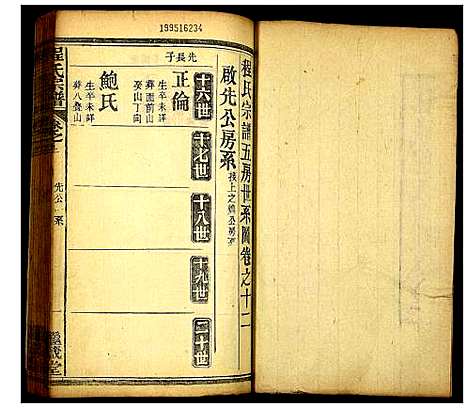 199516234
程氏宗譜五房世系圖卷之十二
啟先公房系
十六世
十七世
十八世
十九世
二十世
先長子
正倫
生卒未詳
葬面前山
癸山丁向
鮑氏
生卒未詳
葬八疊山
程氏宗譜
卷之
先公 系